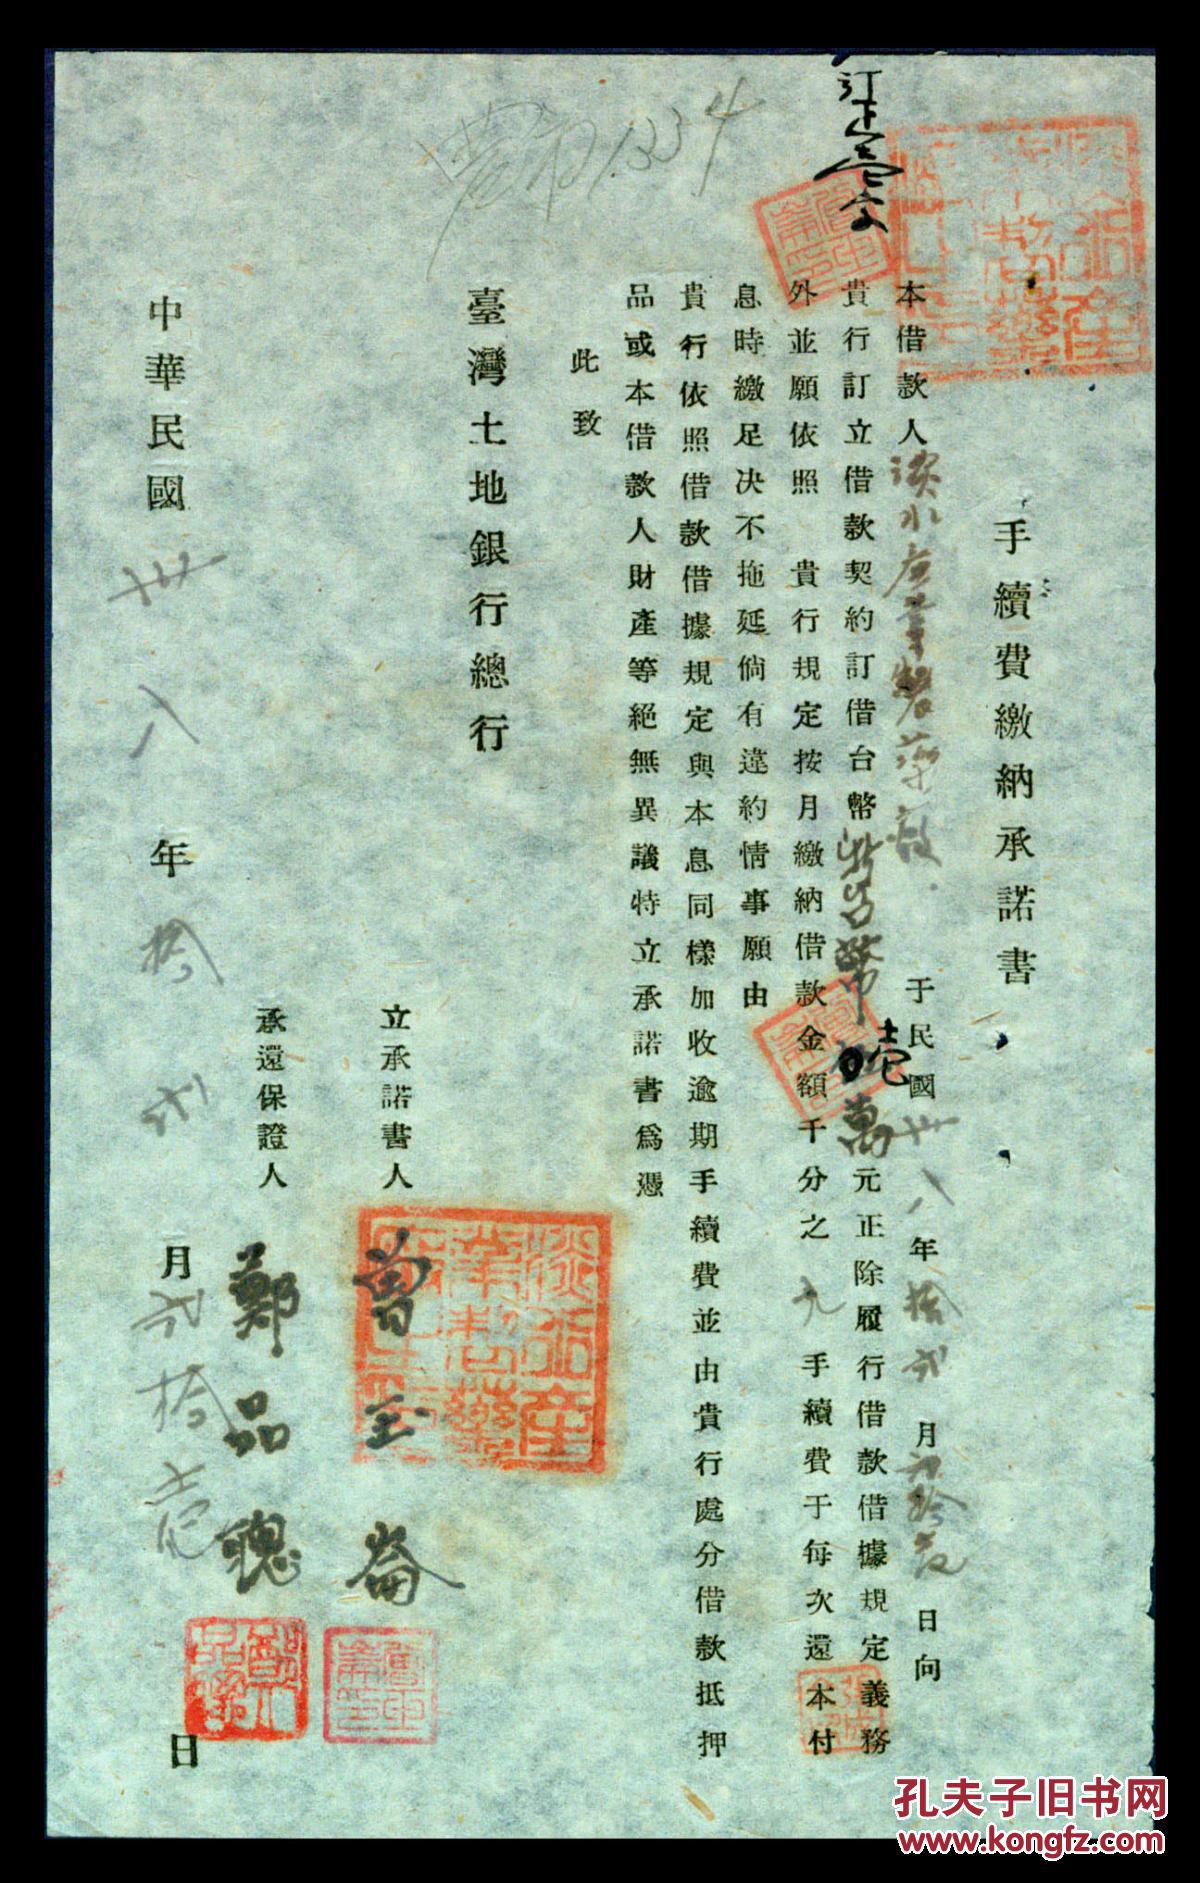 手續費繳納承諾書
本借款人淡水產業製藥廠于民國卅八年拾貳月日向
貴行訂立借款契約訂借台幣新台幣壱萬元正除履行借款借據規定義務
外並願依照　貴行規定按月繳納借款金額千分之九手續費于每次還本付
息時繳足決不拖延倘有違約情事願由
貴行依照借款借據規定與本息同樣加收逾期手續費並由貴行處分借款抵押
品或本借款人財產等絕無異議特立承諾書爲憑
此致
臺灣土地銀行總行
立承諾書人 曾玉崙
承還保證人 鄭品聰
中華民國卅八年拾貳月貳拾壹日
1334
孔夫子旧书网
www.kongfz.com